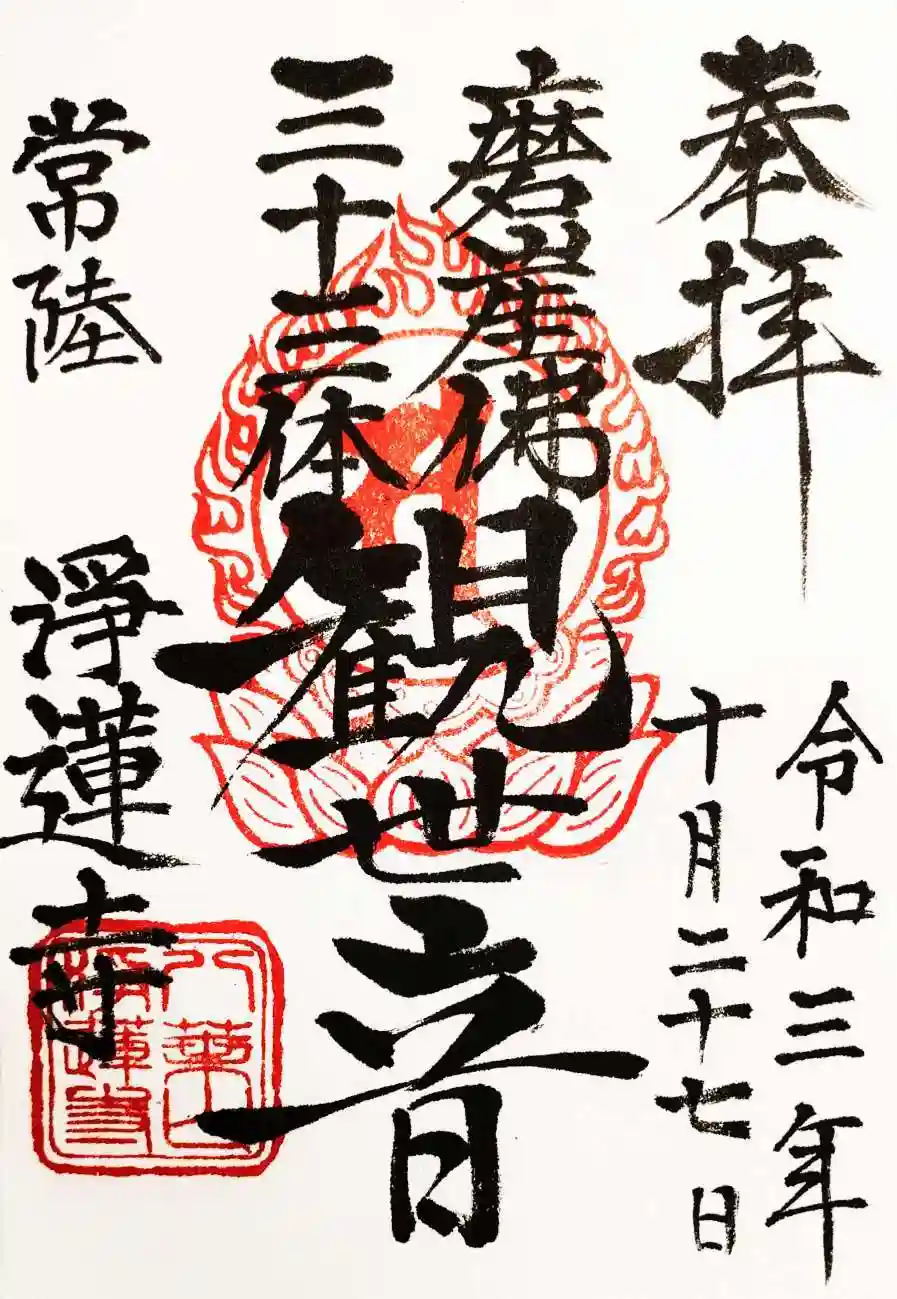 奉拝
令和三年
十月二十七日
磨崖佛
三十三体
観世音
常陸
淨蓮寺
八葉山
淨蓮寺